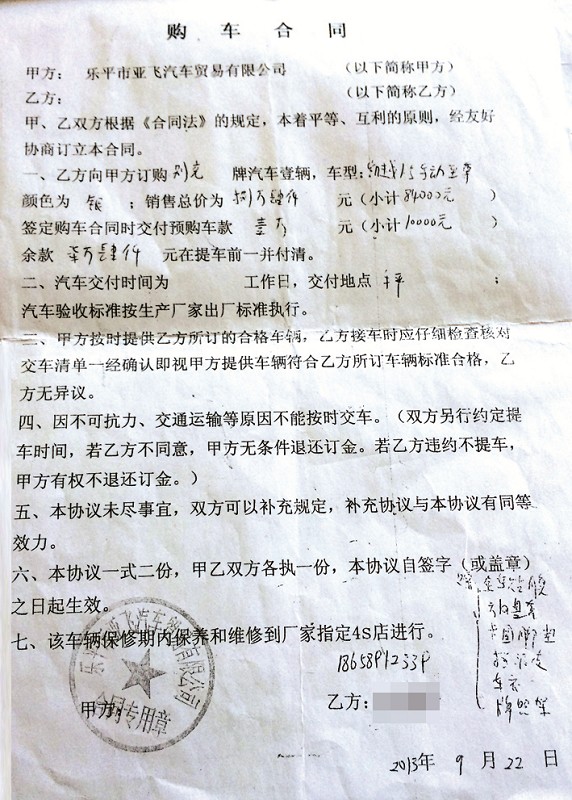 购车合同
甲方： 乐平市亚飞汽车贸易有限公司 （以下简称甲方）
乙方： （以下简称乙方）
甲、乙双方根据《合同法》的规定，本着平等、互利的原则，经友好
协商订立本合同。
一、乙方向甲方订购 别克 牌汽车壹辆，车型：
颜色为 银 ；销售总价为 捌万肆仟 元（小计84000元 ）
签定购车合同时交付预购车款 壹万 元（小计10000元 ）
余款 柒万肆仟 元在提车前一并付清。
二、汽车交付时间为 工作日，交付地点 ；
汽车验收标准按生产厂家出厂标准执行。
三、甲方按时提供乙方所订的合格车辆，乙方接车时应仔细检查核对
交车清单一经确认即视甲方提供车辆符合乙方所订车辆标准合格，乙
方无异议。
四、因不可抗力、交通运输等原因不能按时交车。（双方另行约定提
车时间，若乙方不同意，甲方无条件退还订金。若乙方违约不提车，
甲方有权不退还订金。）
五、本协议未尽事宜，双方可以补充规定，补充协议与本协议有同等
效力。
六、本协议一式二份，甲乙双方各执一份，本协议自签字（或盖章）
之日起生效。
七、该车辆保修期内保养和维修到厂家指定4S店进行。
乐平市亚飞汽车贸易有限公司
合同专用章
甲方：
乙方：
牌照架
2013年 9 月 22 日